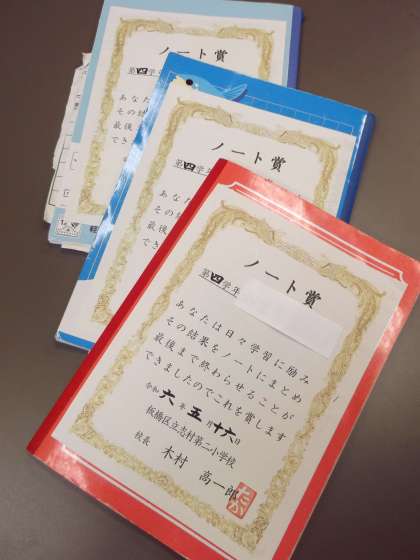 ノート賞
第四学年
あな
その結
最後
でき
ノート賞
第四学年
あなた
その結
最後ま
でき
ノート賞
第四学年
あなたは日々学習に励み
その結果をノートにまとめ
最後まで終わらせることが
できましたのでこれを賞します
令和六年五月十六日
板橋区立志村第二小学校
校長 木村 高一郎